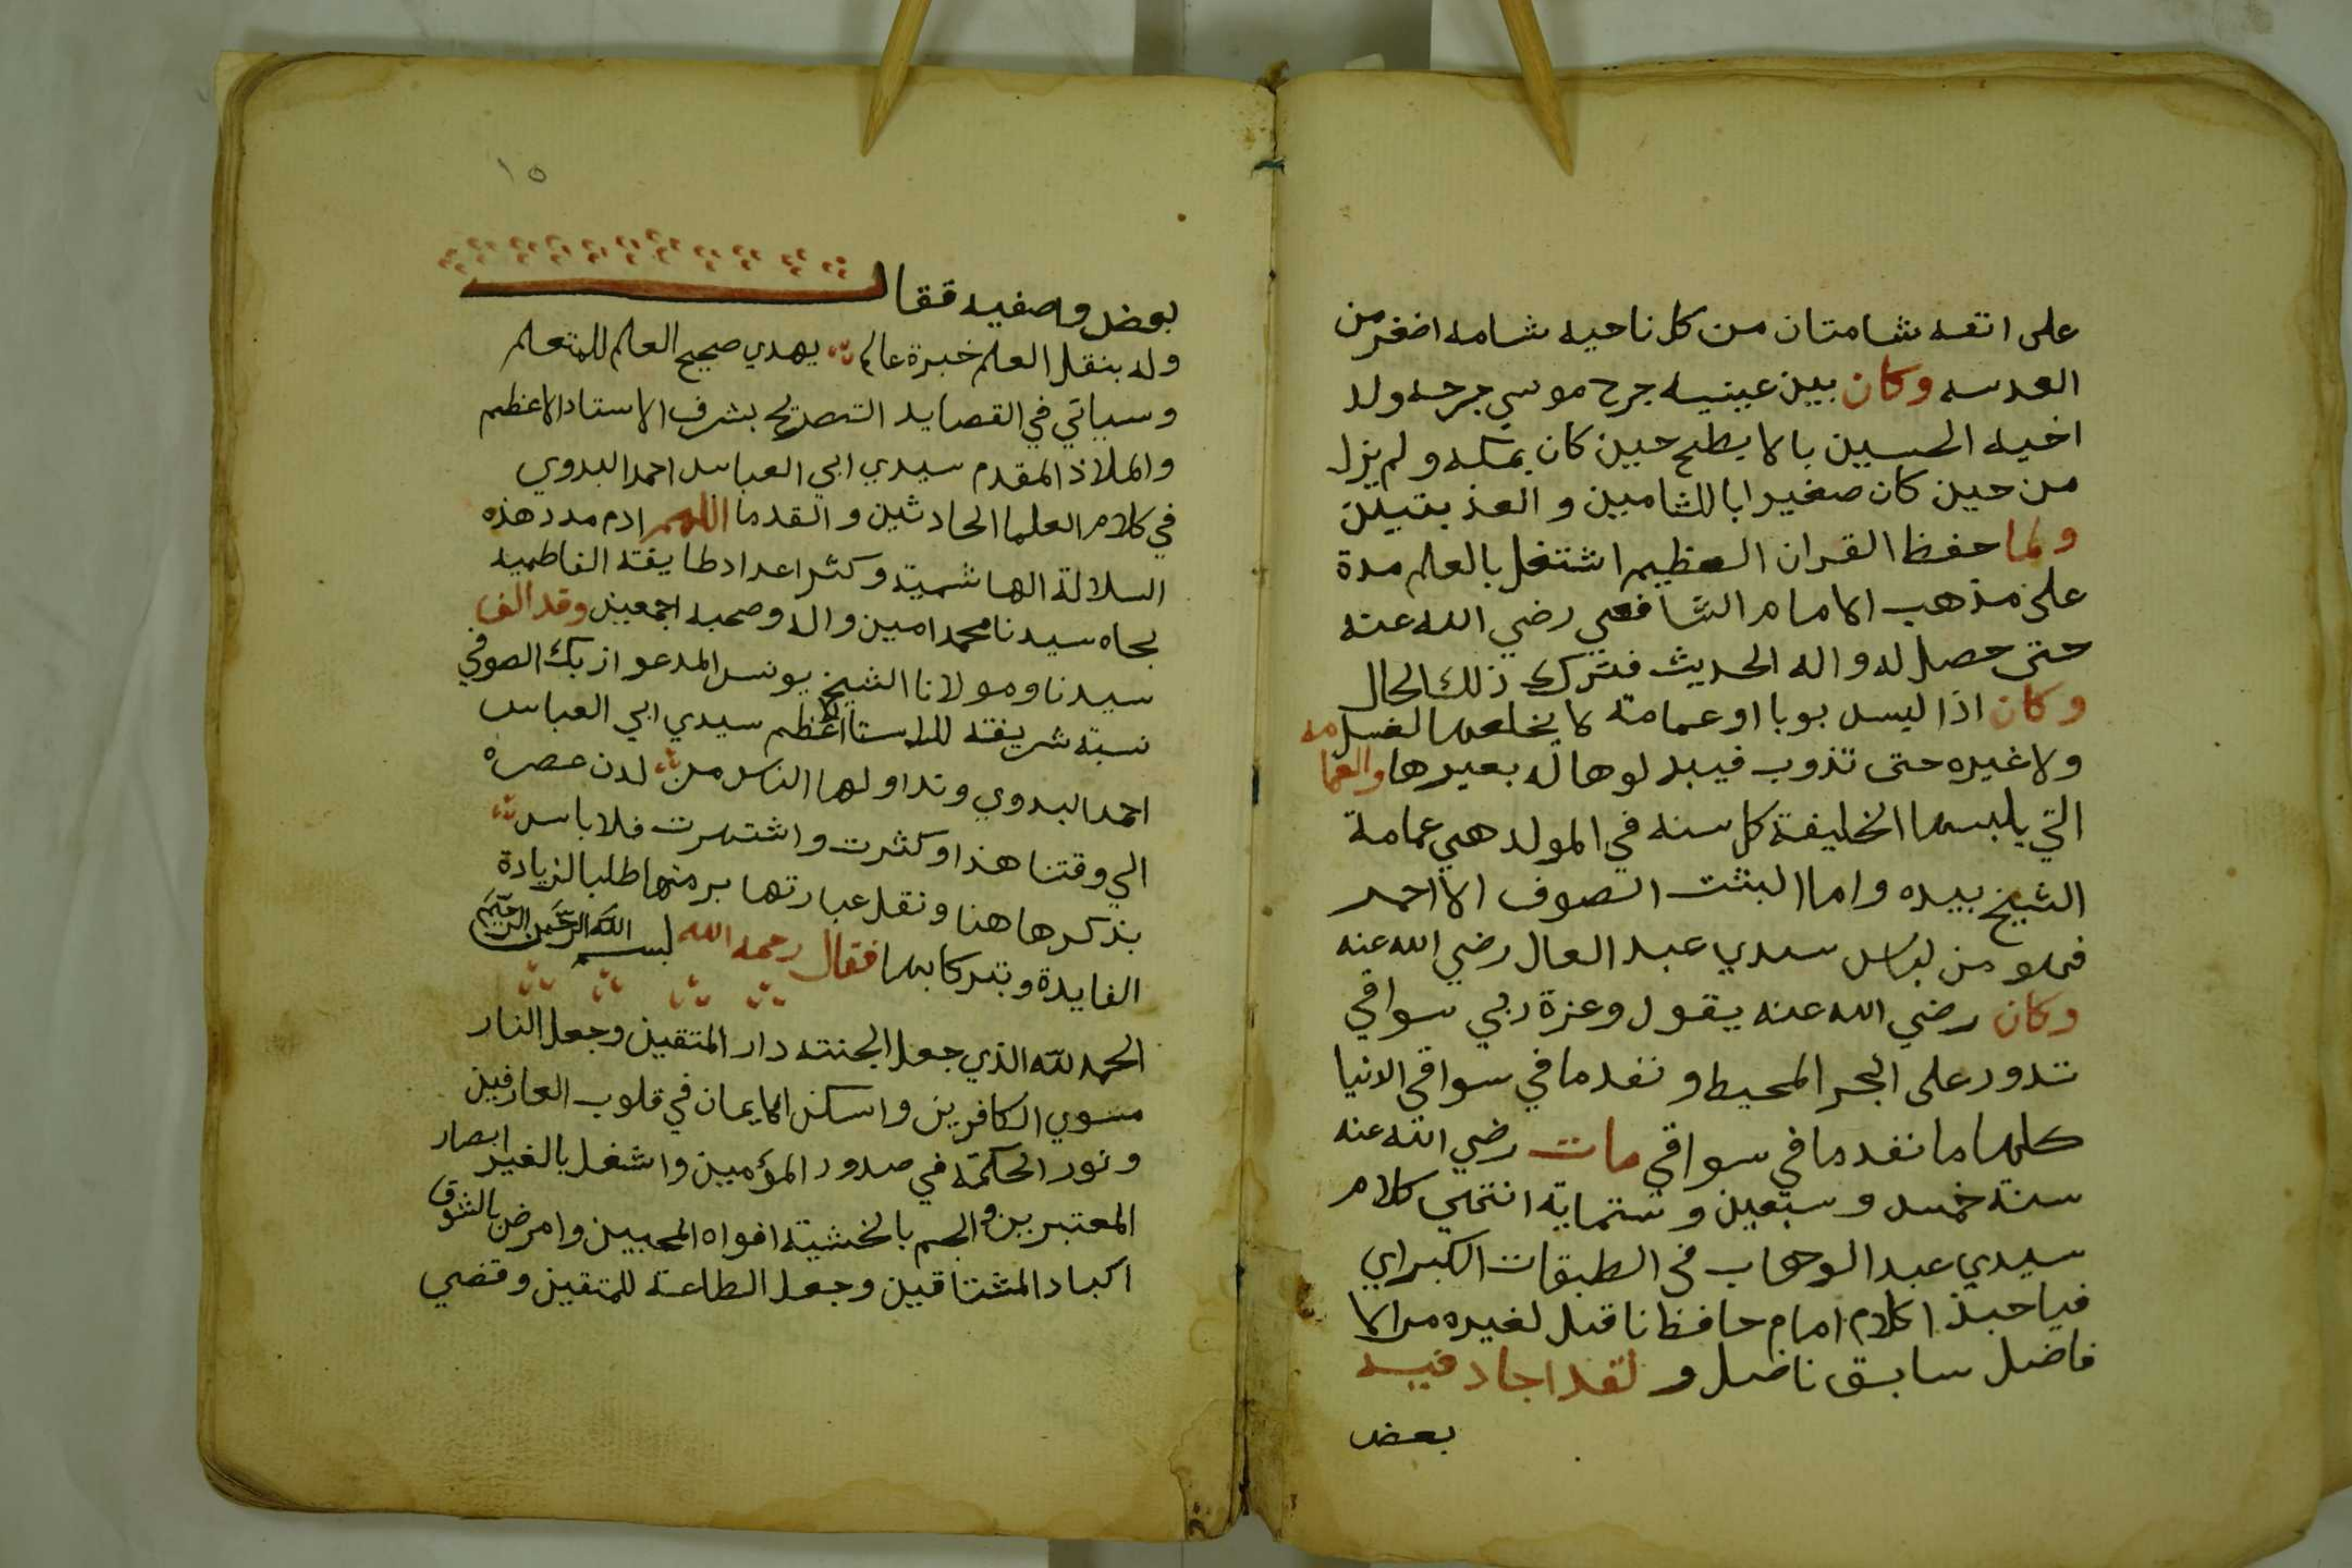 على انفه شامتان من كل ناحيه شامه اضغر من
العدسه وكان بين عينيه جرح موسي جرحه ولد
اخيه الحسين بالابطح حين كان بمكه ولم يزل
من حين كان صغيرا باللثامين و العذ بتين
ولما حفظ القران العظيم اشتغل بالعلم مدة
على مذهب الامام الشافعي رضي الله عنه
حتى حصل له واله الحديث فترك ذلك الحال
وكان اذا لبس بوبا او عمامة لا يخلعها لغسل
ولا غيره حتى تذوب فيبد لوها له بعيرها والعمامه
التي يلبسها الخليفة كل سنه في المولد هي عمامة
الشيخ بيده واما البشت الصوف الااحمر
فهو من لباس سيدي عبد العال رضي الله عنه
وكان رضي الله عنه يقول وعزة ربي سواقي
تدور على البحر المحيط و نفد ما في سواقي الانيا
كلها ما نفد ما في سواقي مات رضي الله عنه
سنة خمس و سبعين و ستماية انتهي كلام
سيدي عبد الوهاب في الطبقات الكبراي
فياحبذا كلام امام حافظ ناقل لغيره من الا
فاضل سابق ناضل و لقد اجاد فيه
بعض
١٥
بعض واصفيه فقال
وله بنقل العلم خبرة عالم يهدي صحيح العلم للمتعلم
وسياتي في القصايد التصريح بشرف الاستاد الاعظم
والملاذ المقدم سيدي ابي العباس احمد البدوي
في كلام العلما الحادثين و القدما اللهم ادم مدد هذه
السلالة الهاشمية وكثر اعداد طايفة الفاطميه
بجاه سيدنا محمد امين واله وصحبه اجمعين وقد الف
سيدنا ومولانا الشيخ يونس المدعو ازبك الصوفي
نسبة شريفة للاستا الاعظم سيدي ابي العباس
احمد البدوي وتداولها الناس من لدن عصره
الي وقتنا هذا وكثرت واشتهرت فلا باس
بذكرها هنا ونقل عبارتها برمتها طلبا لزيادة
الفايدة وتبركا بها فقال رحمه الله بسم الله الرحمن الرحيم
الحمد لله الذي جعل الجنته دار المتقين وجعل النار
مسوي الكافرين واسكن الايمان في قلوب العارفين
ونور الحكمة في صدور المؤمين واشغل بالغير ابصار
المعتبرين والجم بالخشية افواه المحبين وامرض بالشوق
اكباد المشتاقين وجعل الطاعة للمتقين وقضي